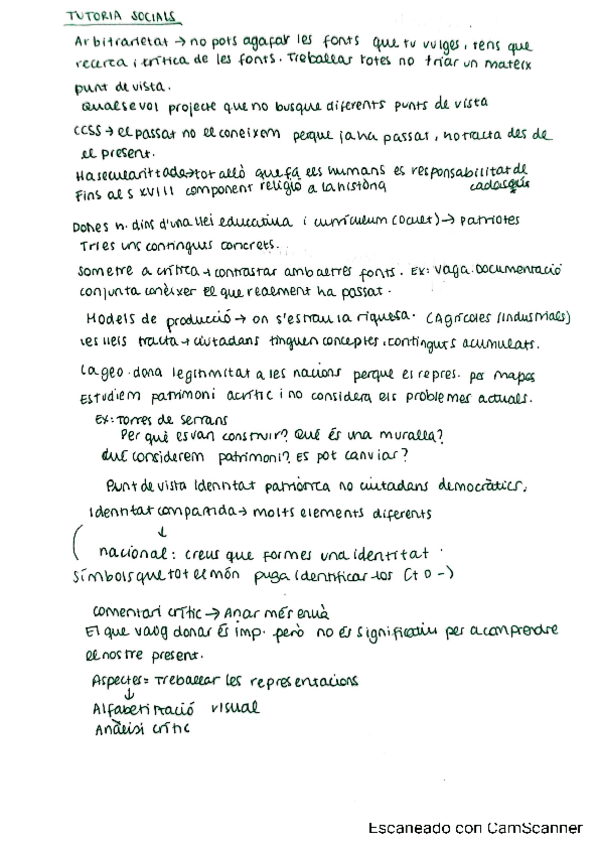 TUTORIA SOCIALS
Arbitrarietat → no pots agafar les fonts que tu vulges, tens que
recerca i crítica de les fonts. Treballar totes no triar un mateix
punt de vista.
Qualsevol projecte que no busque diferents punts de vista
CCSS → el passat no el coneixem perque ja ha passat, no tracta des de
el present.
tot allò que fa els humans es responsabilitat de
cadascú
Fins al s XVIII component religió a la història
Dones h. dins d'una llei educativa i currículum (ocult) → patriotes
Tries uns continguts concrets.
Sometre a crítica → contrastar amb altres fonts. Ex: vaga. Documentació
conjunta conèixer el que realment ha passat.
Models de producció → on s'estrau la riquesa. (Agrícoles / Industrials)
les lleis tracta → ciutadans tinguen conceptes, continguts acumulats.
La geo. dona legitimitat a les nacions perque el repres. per mapes
Estudiem patrimoni acrític i no considera els problemes actuals.
Ex: Torres de Serrans
Per què es van construir? Què és una muralla?
Què considerem patrimoni? Es pot canviar?
Punt de vista Identitat patriòtica no ciutadans democràtics,
Identitat compartida → molts elements diferents
↓
nacional: creus que formes una identitat.
Símbols que tot el món puga identificar-los (+ o -)
Comentari crític → Anar més enllà
El que vaig donar és imp. però no és significatiu per a comprendre
el nostre present.
Aspectes = Treballar les representacions
↓
Alfabetització visual
Anàlisi crític
Escaneado con CamScanner